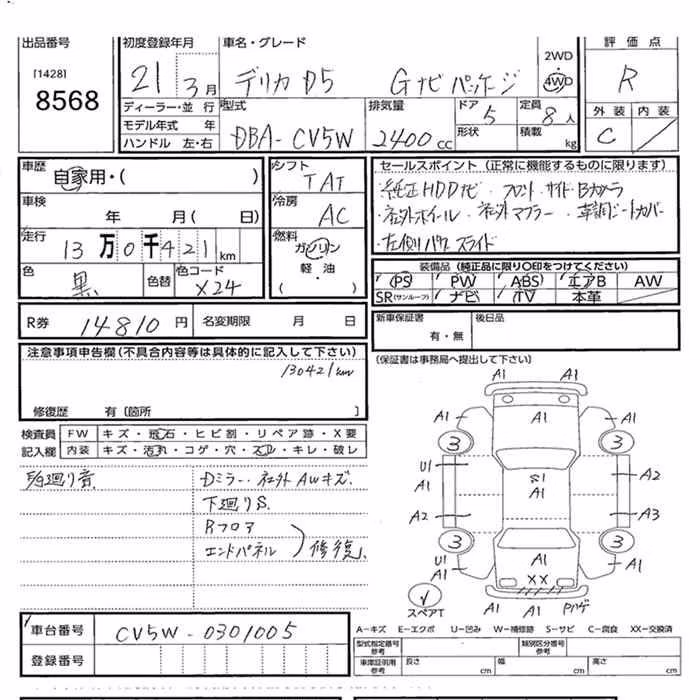 出品番号
[1428]
8568
初度登録年月
21 3月
車名・グレード
デリカ D5 Gナビパッケージ
2WD
4WD
評価点
R
外装 内装
C
ディーラー・並 行
モデル年式 年
ハンドル 左・右
型式
DBA-CV5W
排気量
2400 CC
ドア 5
形状
定員 8人
積載 kg
車歴
自家用・( )
車検
年 月( 日)
走行
13万0千421km
色
黒
色替
色コード
X24
シフト
TAT
冷房
AC
燃料
ガソリン
軽・油
( )
セールスポイント(正常に機能するものに限ります)
・純正HDDナビ・フロント・サイド・Bカメラ
・社外ホイール・社外マフラー・革調シートカバー
・左側パワスライド
装備品(純正品に限り〇印をつけてください)
PS PW ABS エアB AW
SR(サンルーフ) ナビ TV 本革
R券 14810円
名変期限 月 日
新車保証書
有・無
後日品
(保証書は事務局へ提出して下さい)
注意事項申告欄(不具合内容等は具体的に記入して下さい)
130421km
修復歴 有〔箇所 〕
検査員
記入欄
FW キズ・飛石・ヒビ割・リペア跡・X要
内装 キズ・汚れ・コゲ・穴・スレ・キレ・破レ
廻り音
Dミラー・社外AWキズ
下廻りS
Rフロア
エンドパネル
修復
A1 A1
A1 A1 A1
3 3
U1 S1 A2
A1 A1
A2 A3
3 3
U1 A1 A1
A1 XX
スペアT
A1 A1 Pハゲ
車台番号 CV5W-0301005
登録番号
A-キズ E-エクボ U-凹み W-補修跡 S-サビ C-腐食 XX-交換済
型式指定番号
参考
類別区分番号
参考
車庫証明用
参考
長さ cm
幅 cm
高さ cm